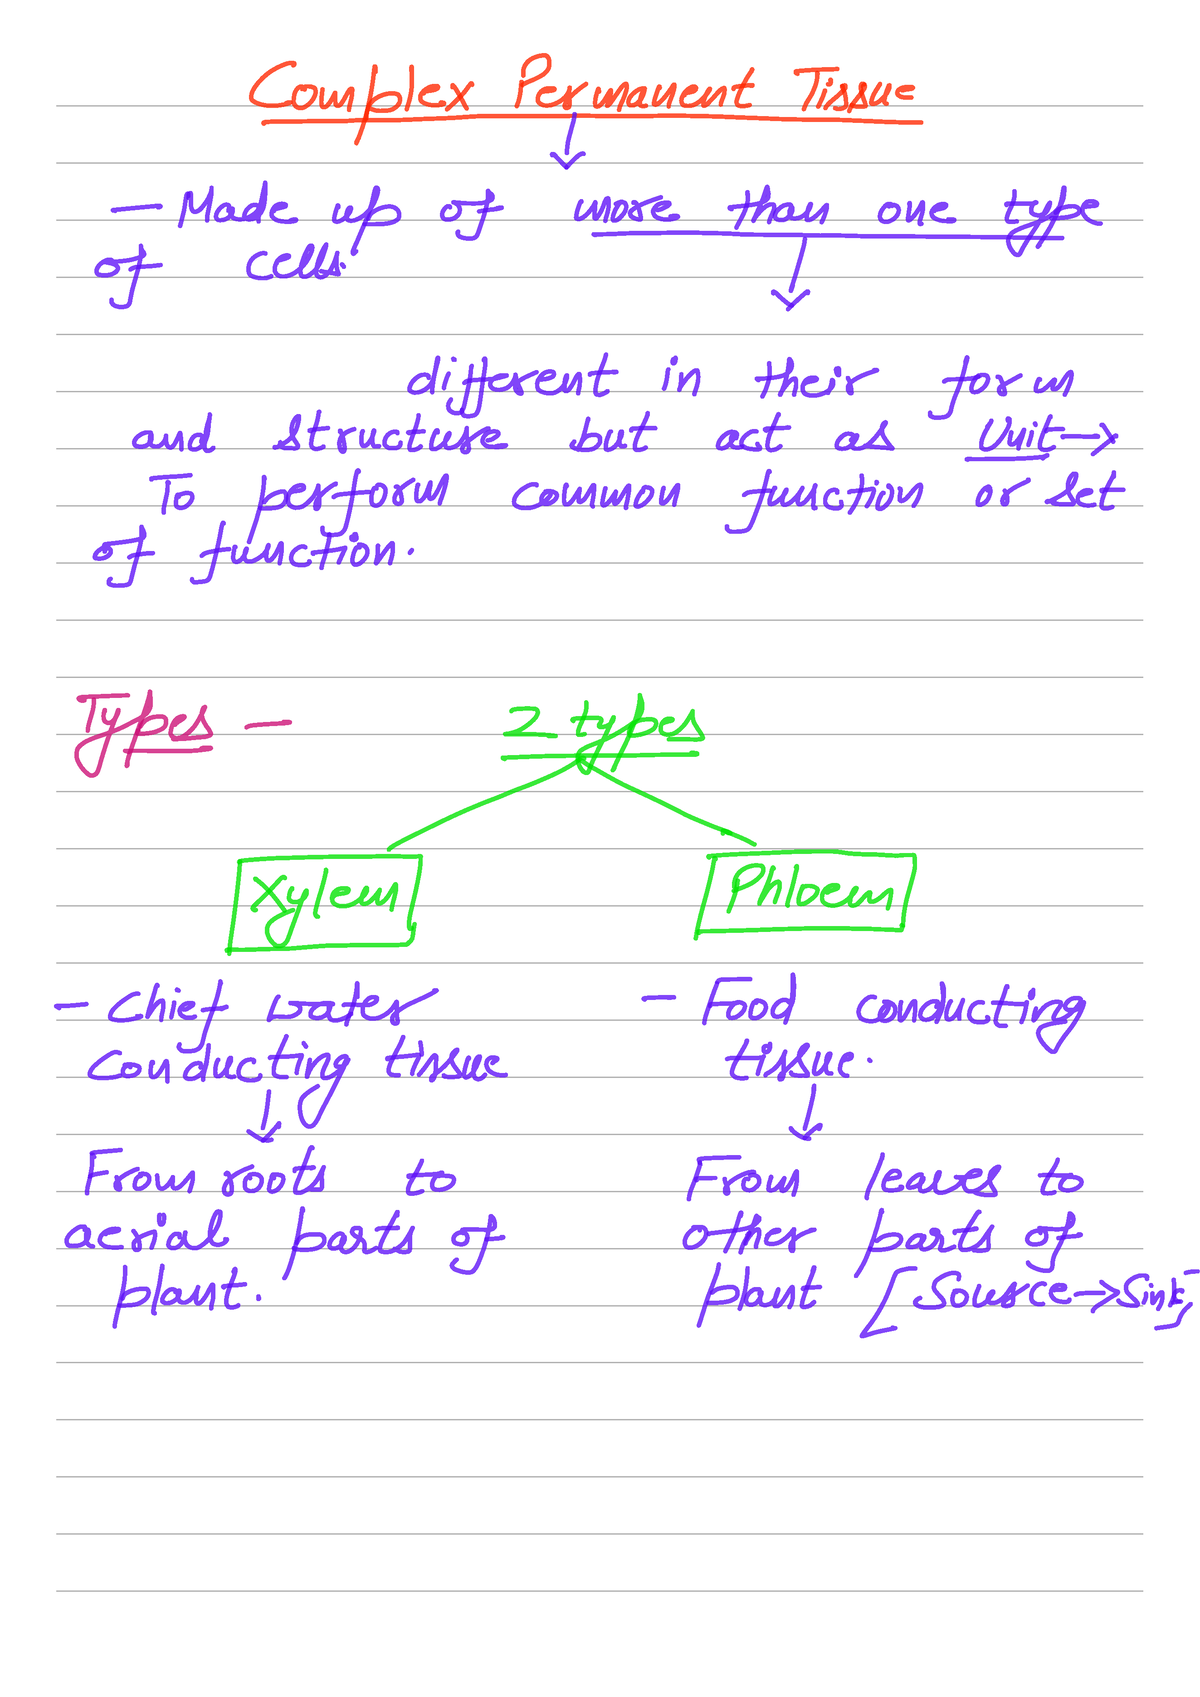 Complex Permanent Tissue
↓
- Made up of more than one type
of cells.
↓
different in their form
and structure but act as Unit →
To perform common function or set
of function.
Types - 2 types
Xylem Phloem
- Chief water
conducting tissue
↓
From roots to
aerial parts of
plant.
- Food conducting
tissue.
↓
From leaves to
other parts of
plant [Source → Sink]